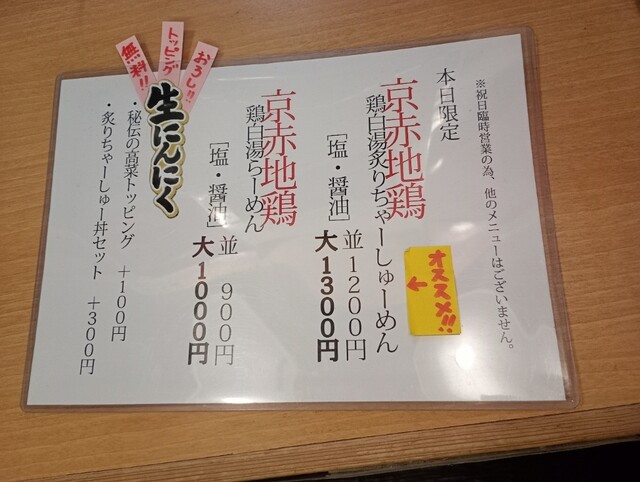 ※祝日臨時営業の為、他のメニューはございません。
本日限定
京赤地鶏
鶏白湯炙りちゃーしゅーめん
［塩・醤油］並１２００円
大１３００円
オススメ!!
←
京赤地鶏
鶏白湯らーめん
［塩・醤油］並　９００円
大１０００円
おろし!!
トッピング
無料!!
生にんにく
・秘伝の高菜トッピング　＋１００円
・炙りちゃーしゅー丼セット　＋３００円